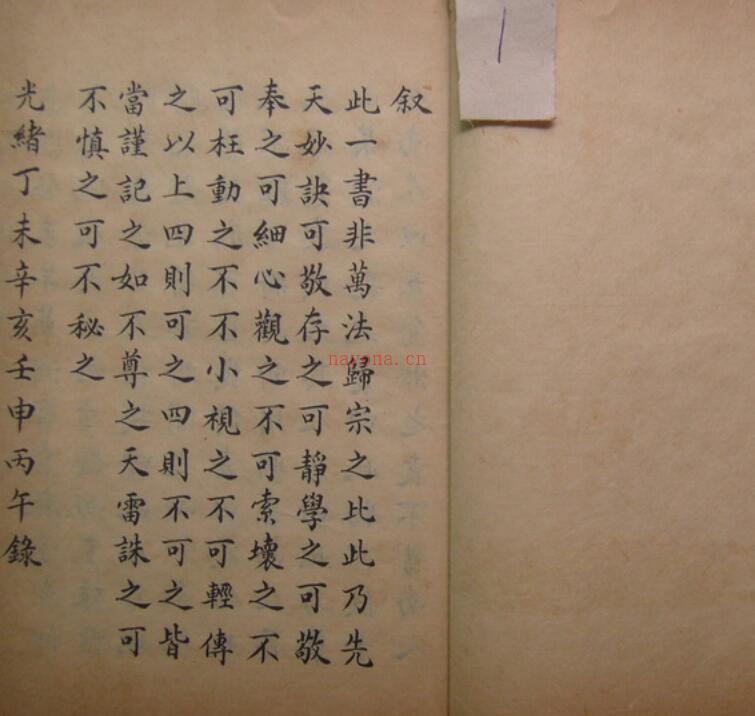 1
叙
此一書非萬法歸宗之比此乃先
天妙訣可敬存之可靜學之可敬
奉之可細心觀之不可索壞之不
可枉動之不不小視之不可輕傳
之以上四則可之四則不可之皆
當謹記之如不尊之天雷誅之可
不慎之可不秘之
光緒丁未辛亥壬申丙午錄
nayona.cn